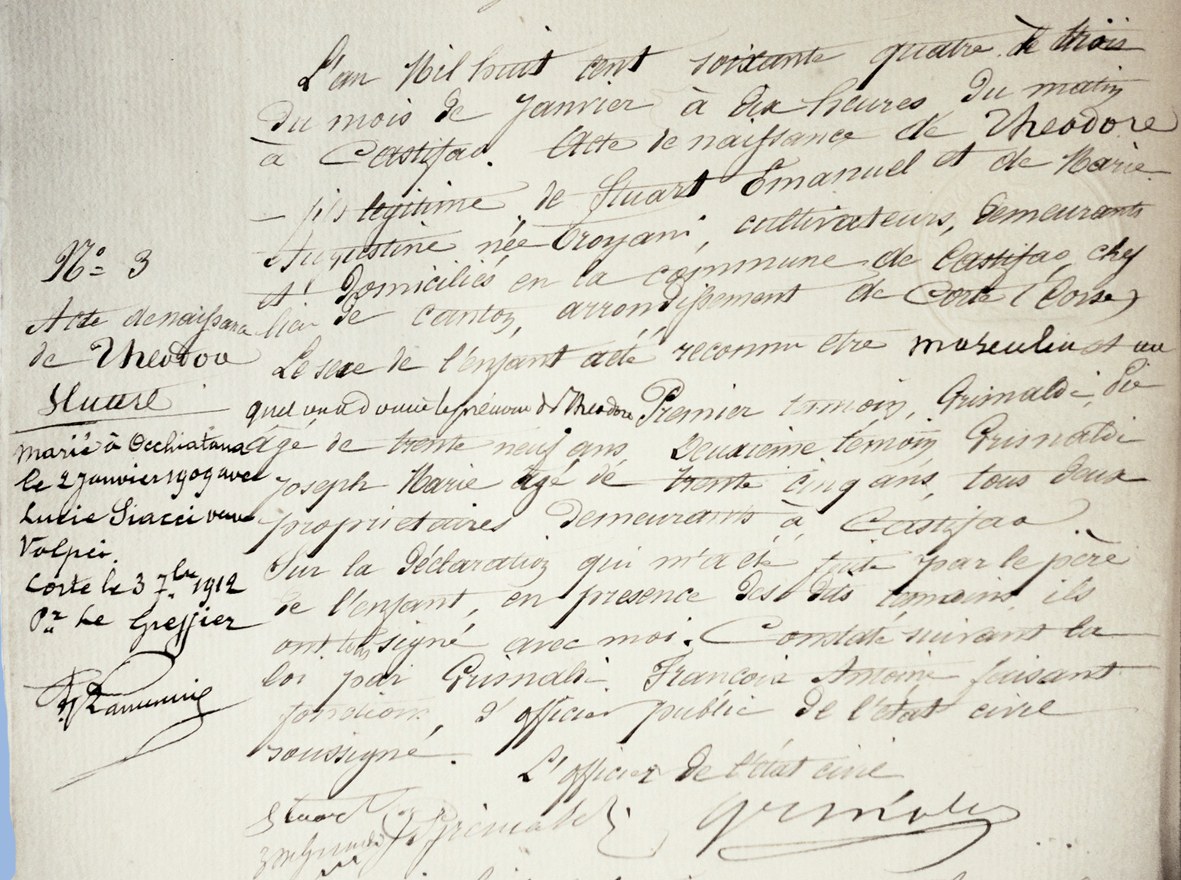 L'an Mil huit cent soixante quatre le trois
du mois de Janvier à dix heures du matin
à Castifao. Acte de naissance de Theodore
– fils légitime de Stuart Emanuel et de Marie
Augustine née Troyani, cultivateurs, demeurants
et domiciliés en la commune de Castifao, chef
lieu de canton, arrondissement de Corte (Corse)
Le sexe de l'enfant a été reconnu etre masculin et au
quel on a donné le prénom de Theodore Premier temoin, Grimaldi,
âgé de trente neuf ans Deuxième témoin Grimaldi
Joseph Marie âgé de trente cinq ans, tous deux
propriétaires demeurants à Castifao
Sur la déclaration qui m'a été faite par le père
de l'enfant, en présence des dits temoins, ils
ont tous signé avec moi. Constaté suivant la
loi par Grimaldi François Antoine faisant
fonctions, d'officier public de l'état civil
soussigné.
L'officier de l'état civil
Stuart
Grimaldi
Grimaldi
N° 3
Acte de naissance
de Theodore
Stuart
marié à Occhiatana
le 2 Janvier 1909 avec
Lucie Siacci veuve
Volpei.
Corte le 3 7bre 1912
Pr Le Greffier